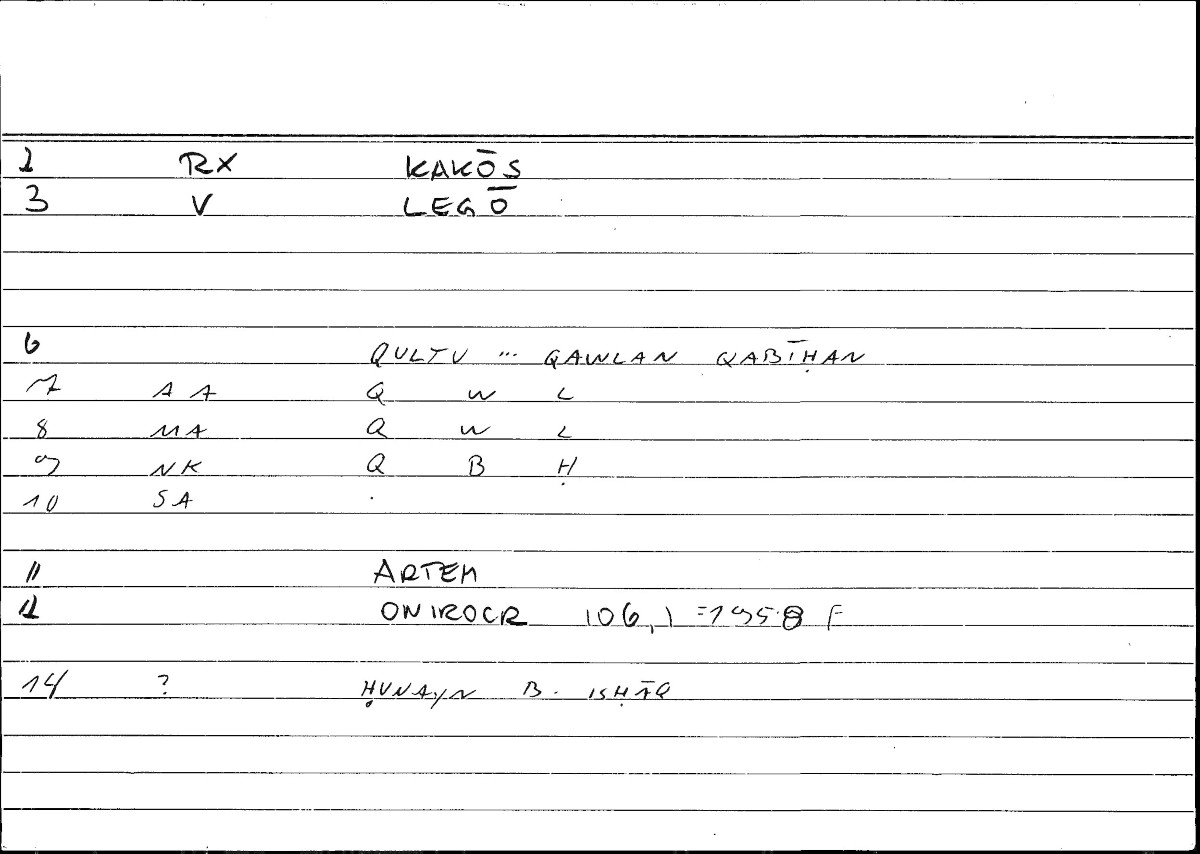 1 RX KAKŌS
3 V LEGŌ
6 QULTU ... QAWLAN QABĪḤAN
7 AA Q W L
8 MA Q W L
9 NK Q B Ḥ
10 SA .
11 ARTEM
12 ONIROCR 106,1 = 195.8 F
14 ? ḤUNAYN B. ISḤĀQ